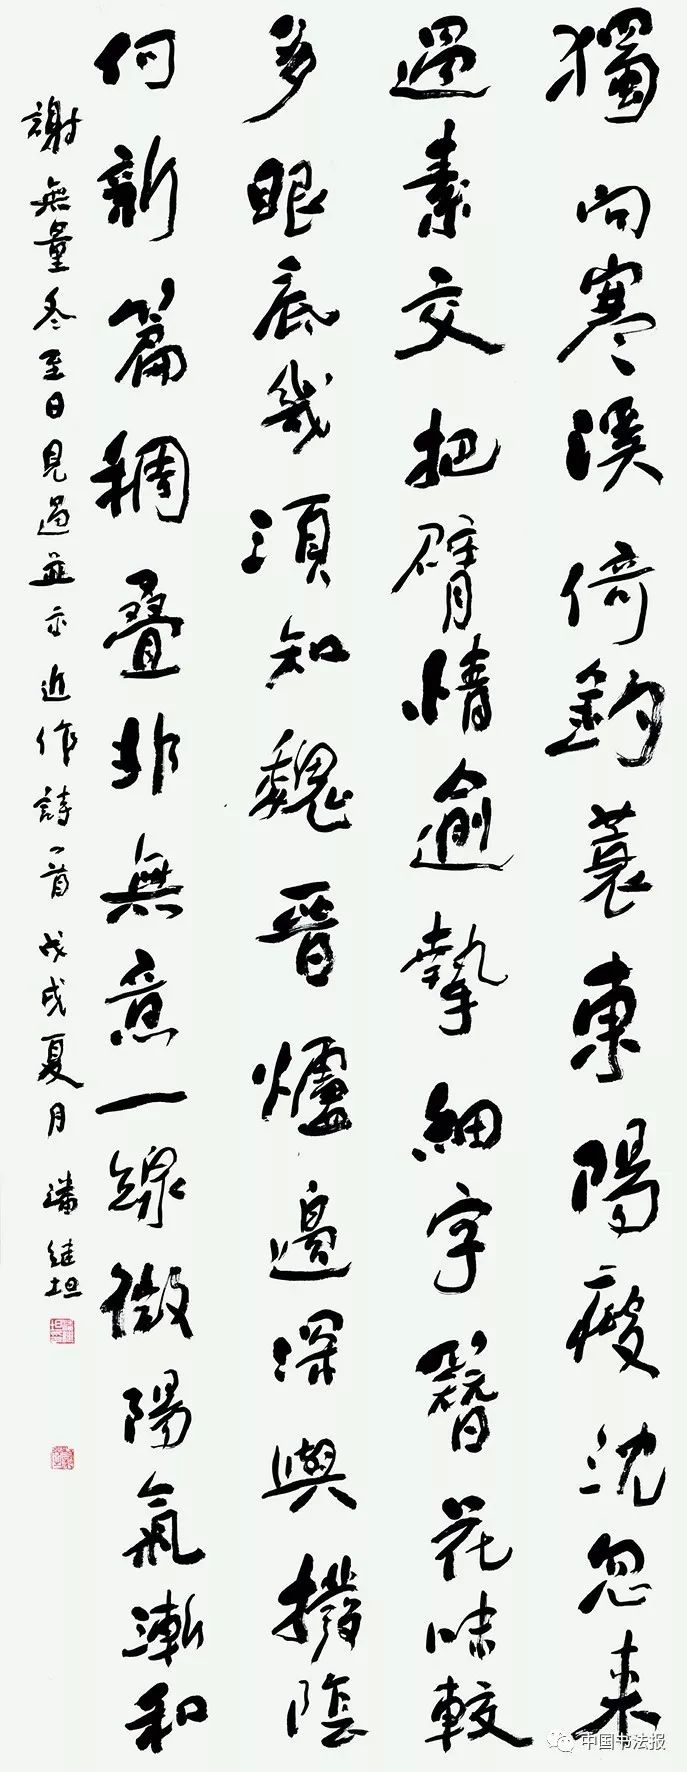 獨向寒溪倚釣蓑東陽瘦沈忽来
過素交把臂情逾摯細字簪花味較
多眼底幾須知魏晉爐邊深與撥陰
何新篇稠疊非無意一線微陽氣漸和
謝無量冬至日見過並示近作詩一首 戊戌夏月 潘坦
中国书法报